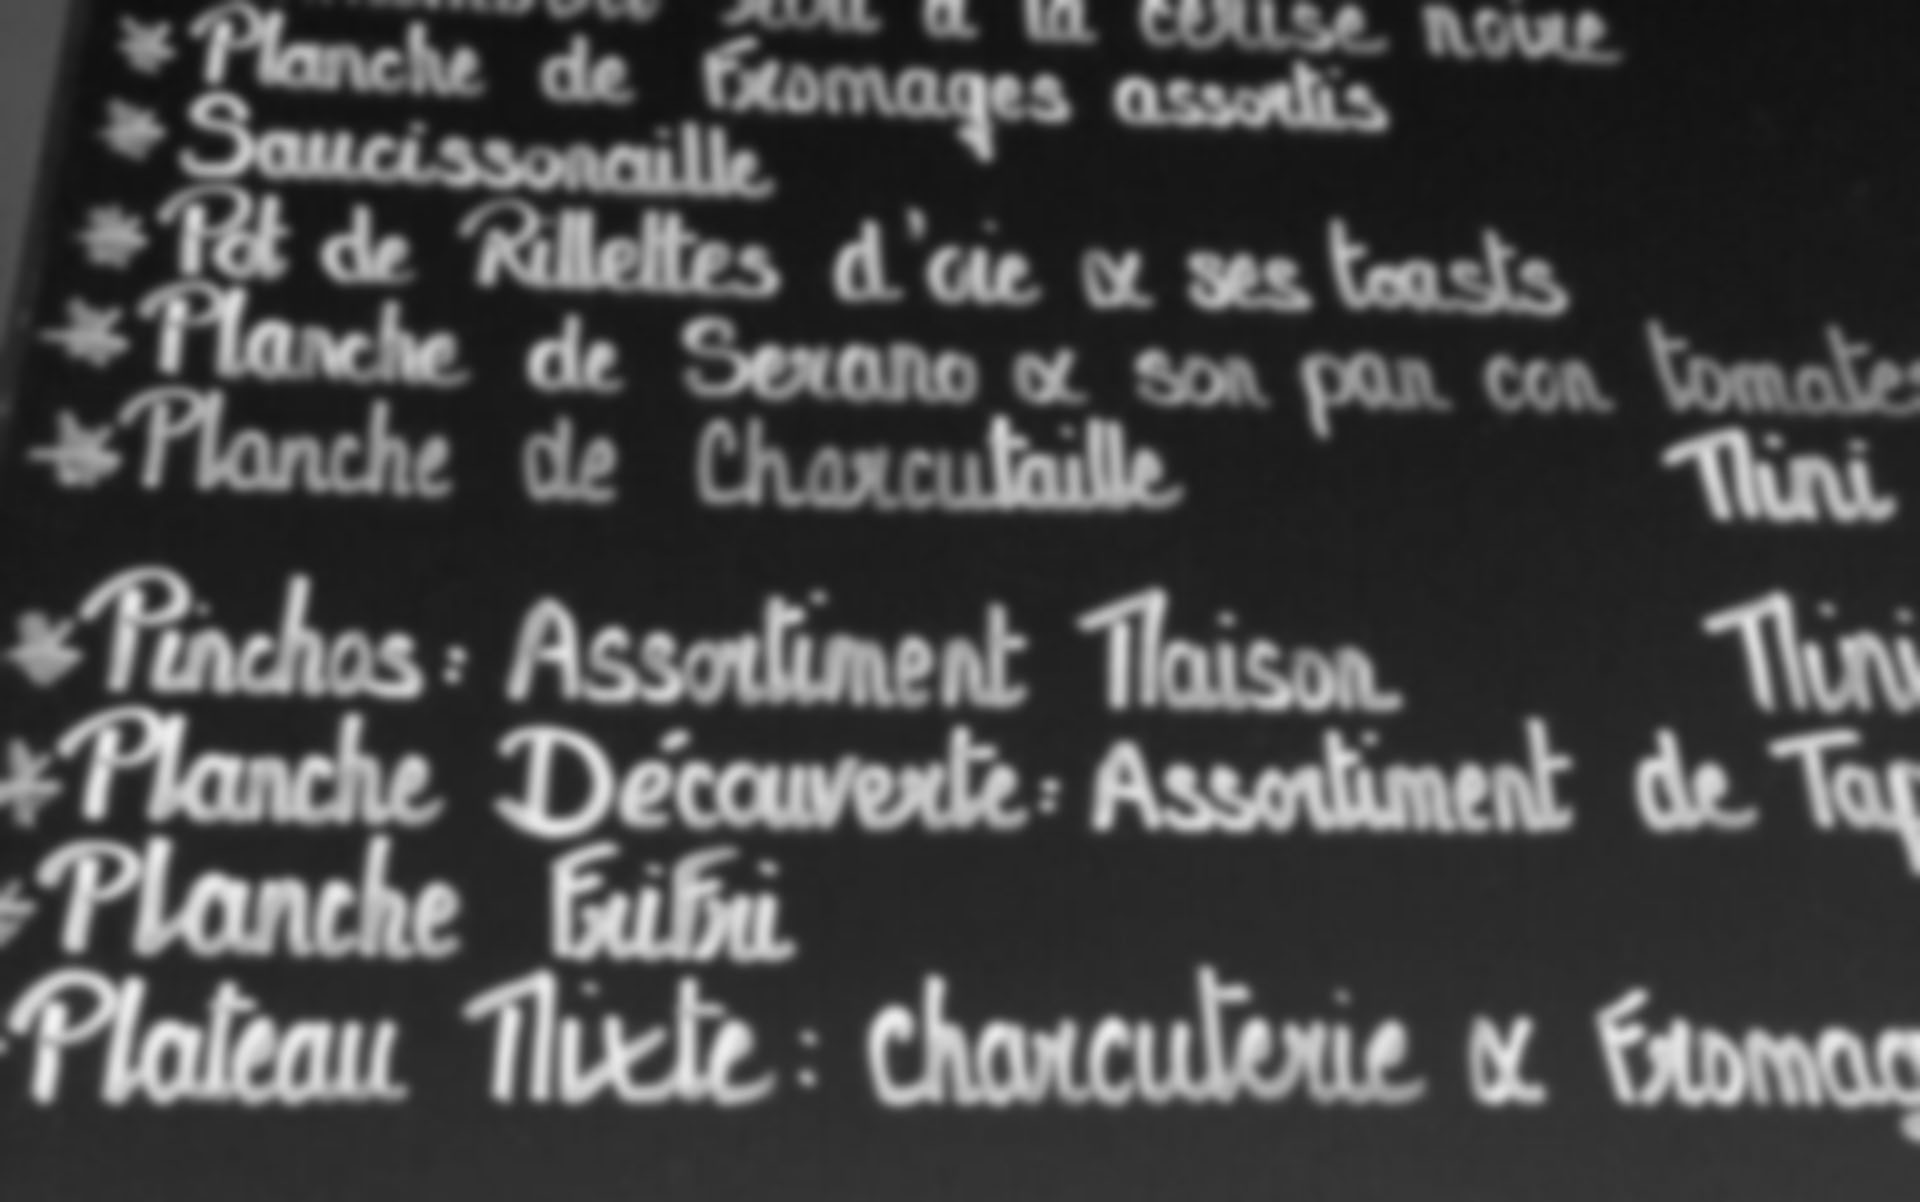 à la cerise noire
* Planche de Fromages assortis
* Saucissonaille
* Pot de Rillettes d'oie & ses toasts
* Planche de Serano & son pan con tomates
* Planche de Charcutaille Mini
* Pinchos : Assortiment Maison Mini
* Planche Découverte : Assortiment de Tap
* Planche FriFri
Plateau Mixte : Charcuterie & Fromag